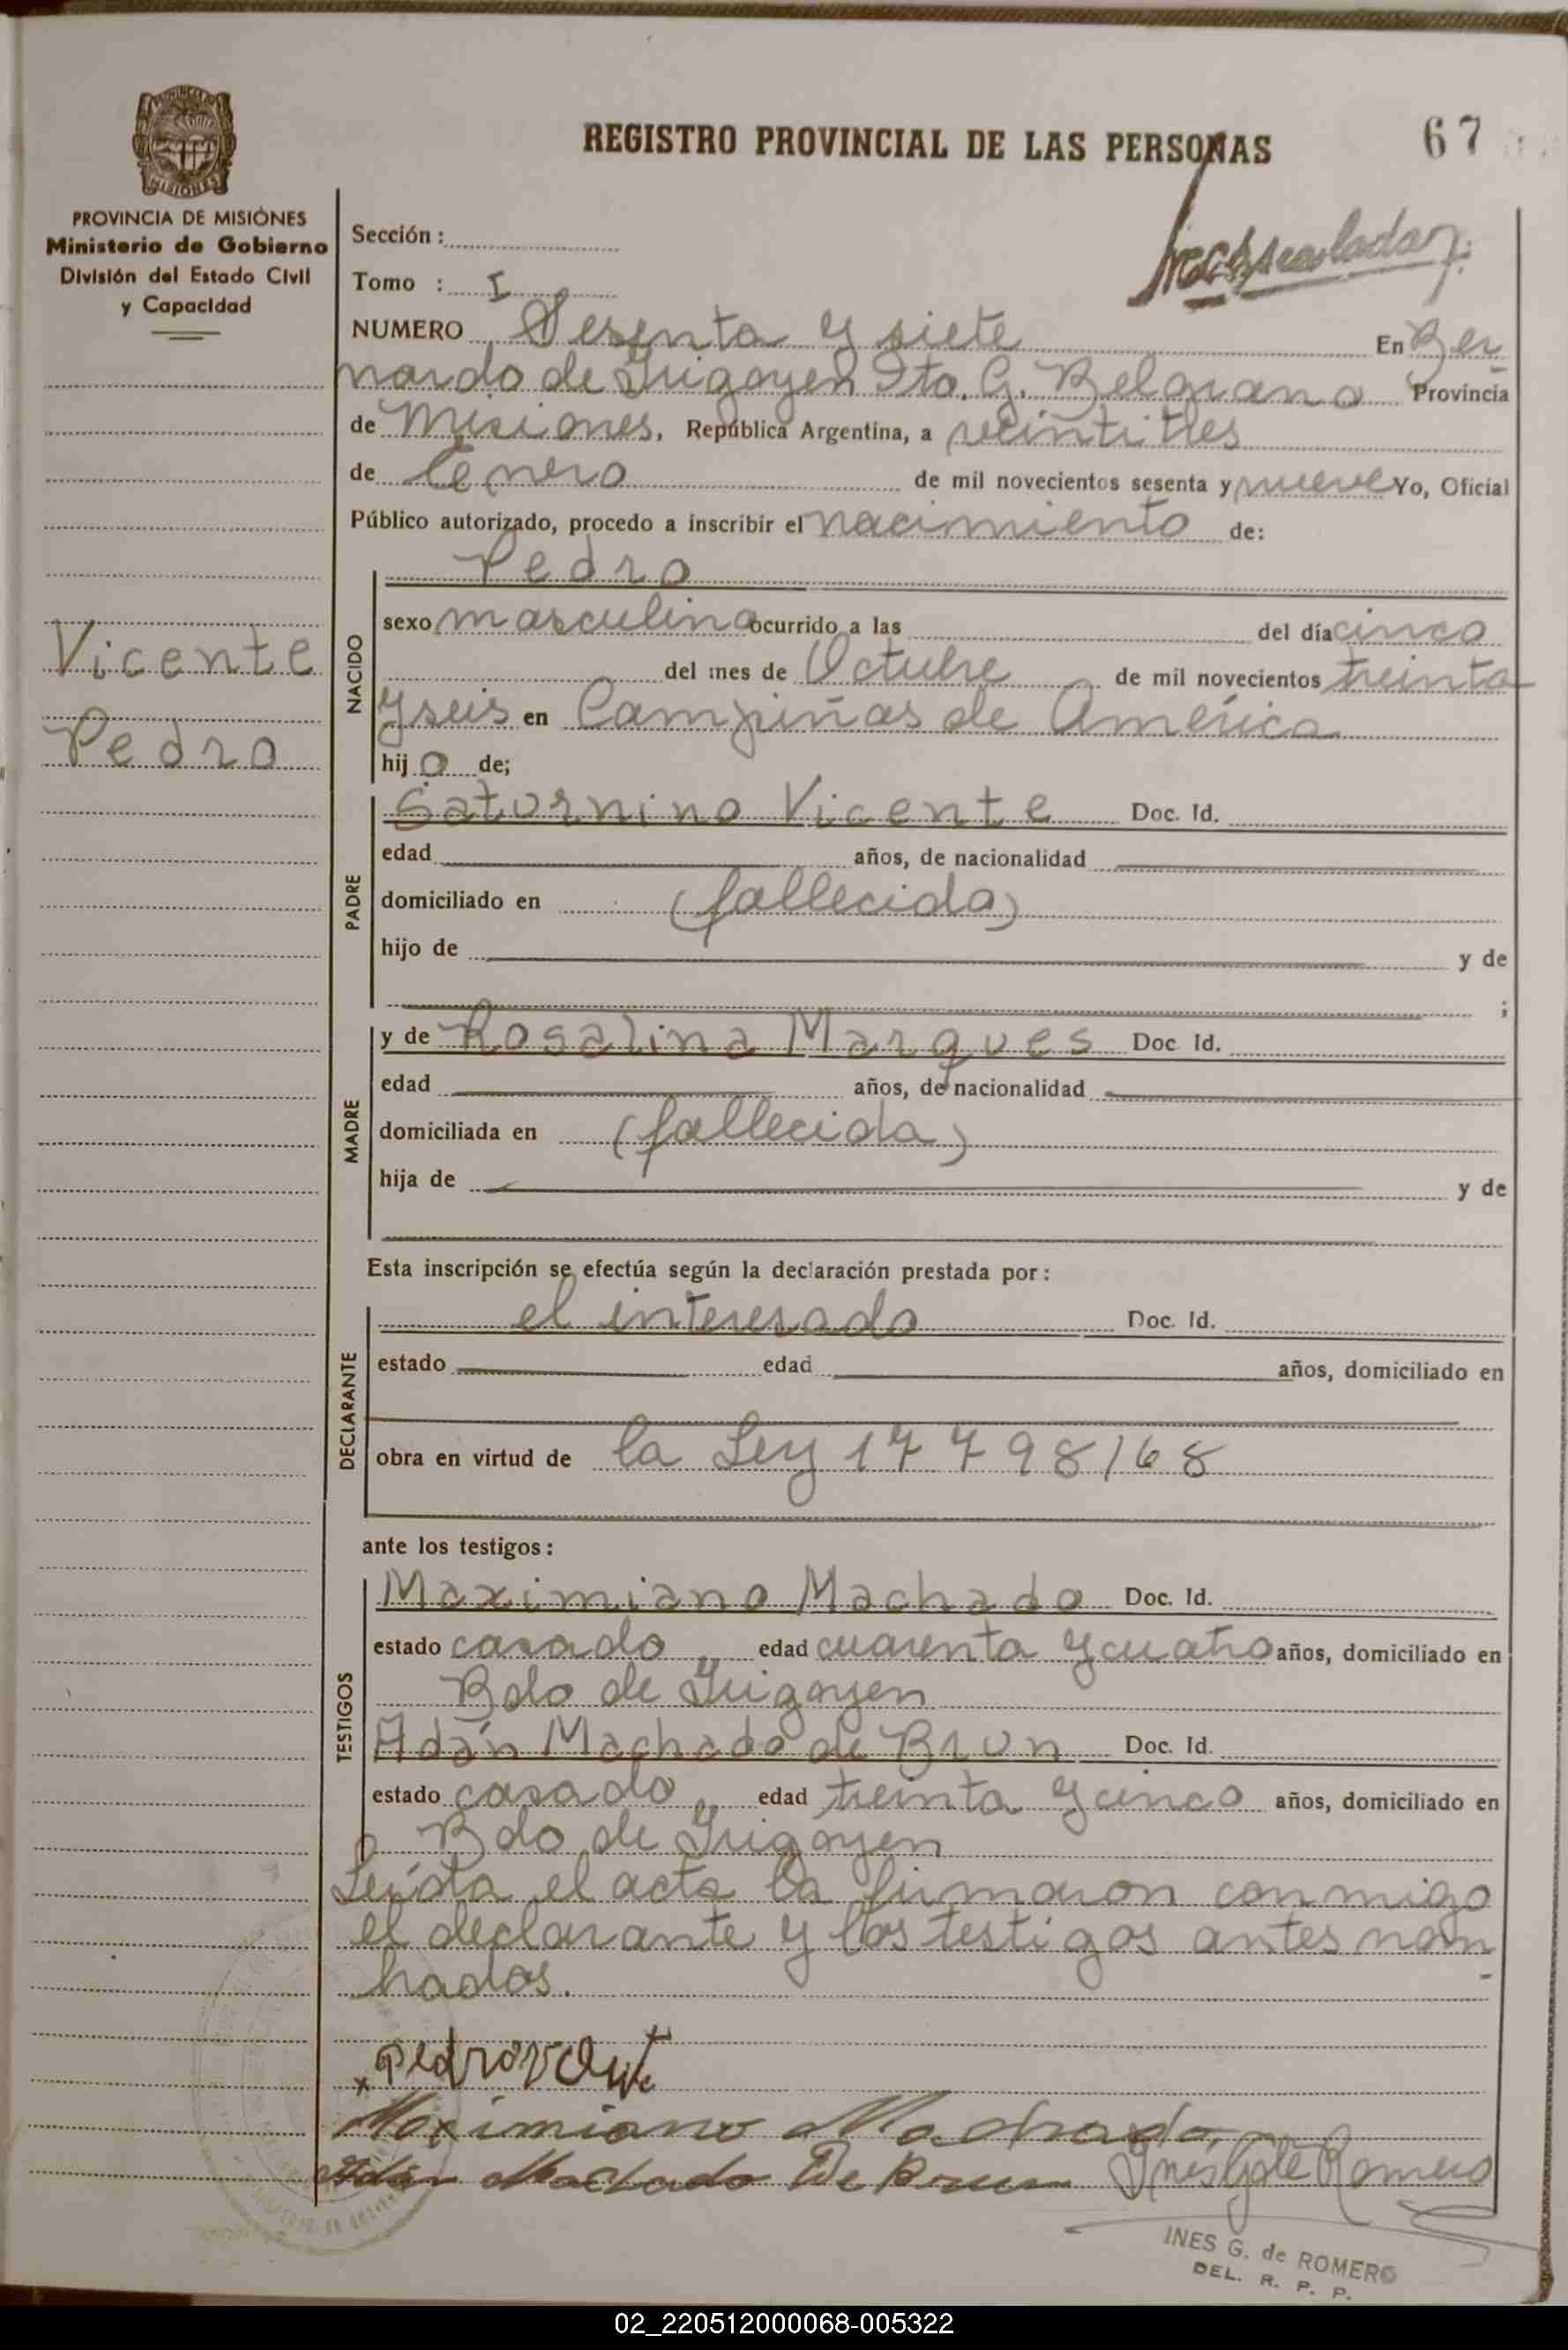 REGISTRO PROVINCIAL DE LAS PERSONAS
67
PROVINCIA DE MISIONES
Ministerio de Gobierno
División del Estado Civil
y Capacidad
Vicente
Pedro
Sección :
Tomo : I
NUMERO Sesenta y siete En Ber
nardo de Irigoyen Dto. G. Belgrano Provincia
de Misiones, República Argentina, a veintitres
de Enero de mil novecientos sesenta y nueve Yo, Oficial
Público autorizado, procedo a inscribir el nacimiento de:
Pedro
NACIDO
sexo masculino ocurrido a las del día cinco
del mes de Octubre de mil novecientos treinta
y seis en Campiñas de América
hij o de;
PADRE
Saturnino Vicente Doc. Id.
edad años, de nacionalidad
domiciliado en (fallecido)
hijo de y de
;
MADRE
y de Rosalina Marques Doc. Id.
edad años, de nacionalidad
domiciliada en (fallecida)
hija de y de
Esta inscripción se efectúa según la declaración prestada por:
DECLARANTE
el interesado Doc. Id.
estado edad años, domiciliado en
obra en virtud de la Ley 17798/68
ante los testigos:
TESTIGOS
Maximiano Machado Doc. Id.
estado casado edad cuarenta y cuatro años, domiciliado en
Bdo de Irigoyen
Adán Machado de Brun Doc. Id.
estado casado edad treinta y cinco años, domiciliado en
Bdo de Irigoyen
Leída el acta la firmaron conmigo
el declarante y los testigos antes nom-
brados.
x Pedro Vicente
Maximiano Machado
Adán Machado De Brun Ines G de Romero
INES G. de ROMERO
DEL. R. P. P.
02_220512000068-005322